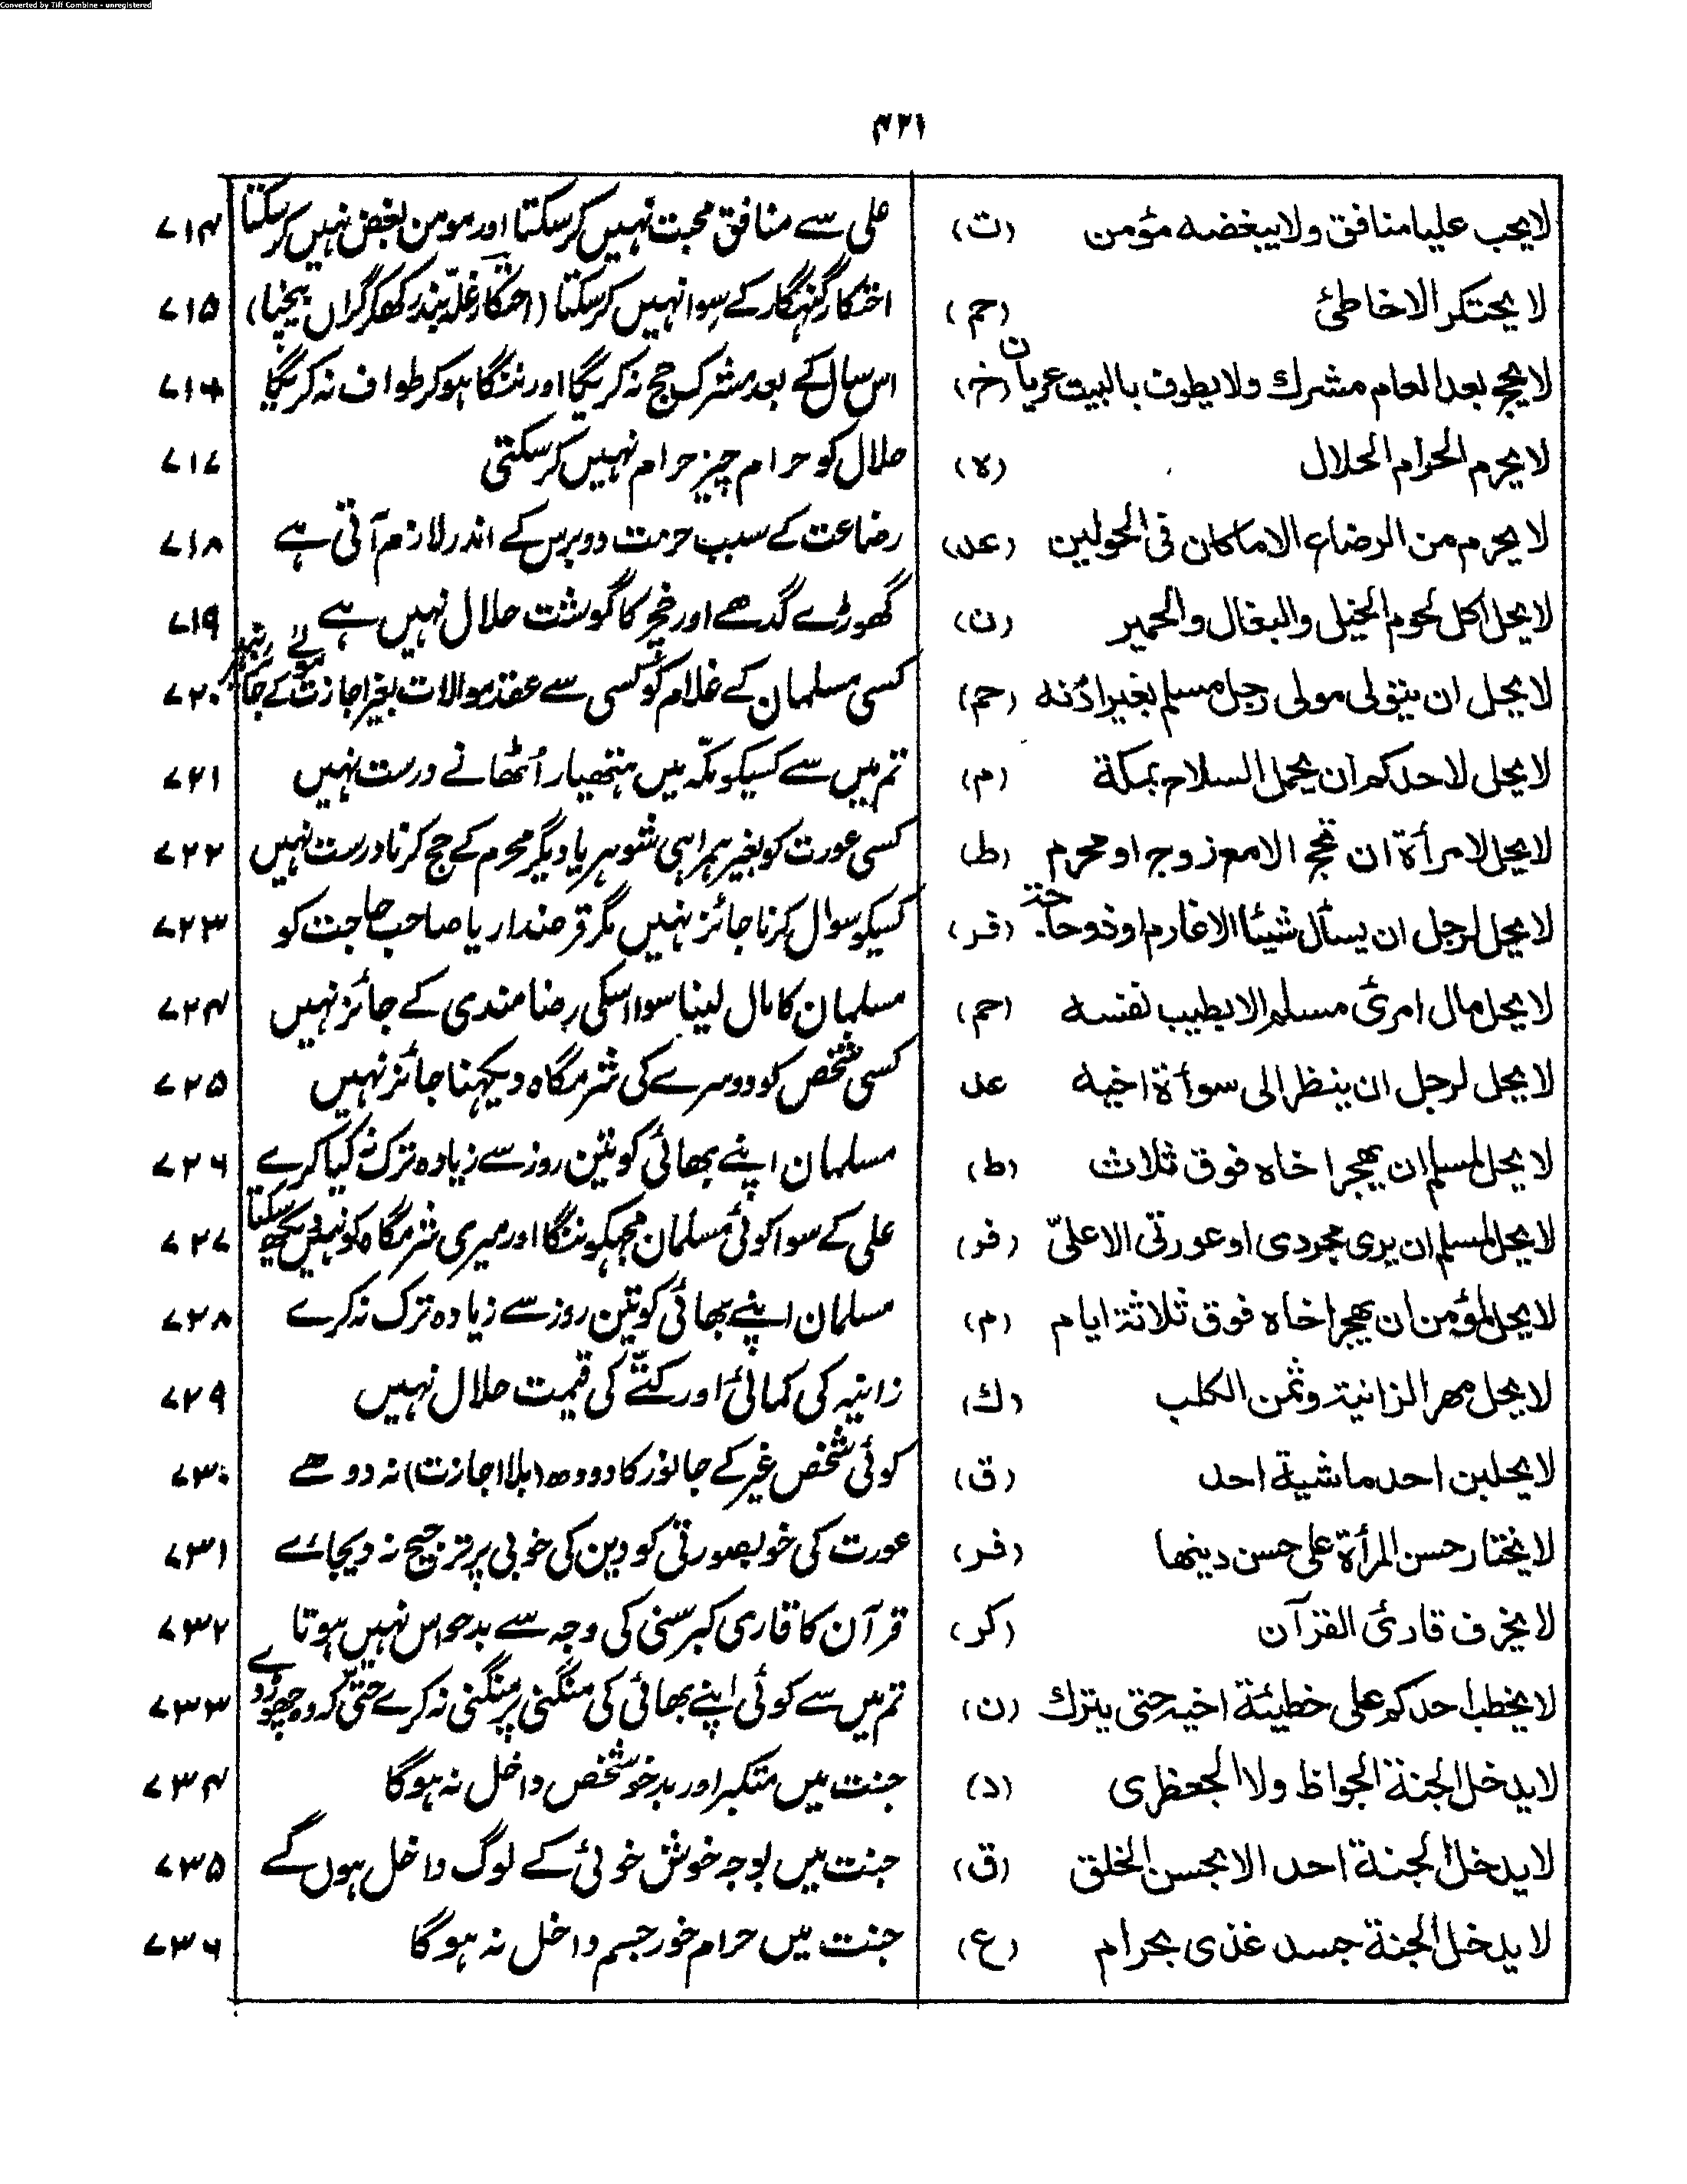 Converted by Tiff Combine - unregistered
۴۲۱
لا یحب علیا منافق ولا یبغضه مؤمن (ت) علی سے منافق محبت نہیں کر سکتا اور مومن بغض نہیں کر سکتا ۷۱۴
لا یحتکر الا خاطئ (حم) احتکار گنہگار کے سوا نہیں کر سکتا (احتکار غلّہ بند رکھکر گراں بیچنا) ۷۱۵
لا یحج بعد العام مشرك ولا یطوف بالبیت عریان (خ) اس سال کے بعد مشرک حج نہ کریگا اور ننگا ہوکر طواف نہ کریگا ۷۱۶
لا یحرم الحرام الحلال (ه) حلال کو حرام چیز حرام نہیں کر سکتی ۷۱۷
لا یحرم من الرضاع الا ما کان فی الحولین (عد) رضاعت کے سبب حرمت دو برس کے اندر لازم آتی ہے ۷۱۸
لا یحل اکل لحوم الخیل والبغال والحمیر (ن) گھوڑے گدھے اور خچر کا گوشت حلال نہیں ہے ۷۱۹
لا یحل ان یتولی مولی رجل مسلم بغیر اذنه (حم) کسی مسلمان کے غلام کو کسی سے عقد موالات بغیر اجازت کے ۷۲۰
لا یحل لاحدکم ان یحمل السلاح بمکة (م) تم میں سے کسیکو مکّہ میں ہتھیار اُٹھانے درست نہیں ۷۲۱
لا یحل لامرأة ان تحج الا مع زوج او محرم (ط) کسی عورت کو بغیر ہمراہی شوہر یا دیگر محرم کے حج کرنا درست نہیں ۷۲۲
لا یحل لرجل ان یسأل شیئا الا غارم او ذو حاجة (فر) کسیکو سوال کرنا جائز نہیں مگر قرضدار یا صاحب حاجت کو ۷۲۳
لا یحل مال امرئ مسلم الا بطیب نفسه (حم) مسلمان کا مال لینا سوا اسکی رضامندی کے جائز نہیں ۷۲۴
لا یحل لرجل ان ینظر الی سوأة اخیه عد کسی شخص کو دوسرے کی شرمگاہ دیکہنا جائز نہیں ۷۲۵
لا یحل لمسلم ان یهجر اخاه فوق ثلاث (ط) مسلمان اپنے بھائی کو تین روز سے زیادہ ترک نہ کیا کرے ۷۲۶
لا یحل لمسلم ان یری مجردی او عورتی الا علیّ (فر) علی کے سوا کوئی مسلمان مجہکو ننگا اور میری شرمگاہ کو نہیں دیکھ سکتا ۷۲۷
لا یحل لمؤمن ان یهجر اخاه فوق ثلاثة ایام (م) مسلمان اپنے بھائی کو تین روز سے زیادہ ترک نہ کرے ۷۲۸
لا یحل مهر الزانیة وثمن الکلب (ك) زانیہ کی کمائی اور کتّے کی قیمت حلال نہیں ۷۲۹
لا یحلبن احد ماشیة احد (ق) کوئی شخص غیر کے جانور کا دودھ (بلا اجازت) نہ دوہے ۷۳۰
لا یختار حسن المرأة علی حسن دینها (فر) عورت کی خوبصورتی کو دین کی خوبی پر ترجیح نہ دیجائے ۷۳۱
لا یخرف قارئ القرآن (کر) قرآن کا قاری کبر سنی کی وجہ سے بدحواس نہیں ہوتا ۷۳۲
لا یخطب احدکم علی خطیئة اخیه حتی یترك (ن) تم میں سے کوئی اپنے بھائی کی منگنی پر منگنی نہ کرے حتیٰ کہ وہ چھوڑ دے ۷۳۳
لا یدخل الجنة الجواظ ولا الجعظری (د) جنت میں متکبر اور بدخو شخص داخل نہ ہوگا ۷۳۴
لا یدخل الجنة احد الا بحسن الخلق (ق) جنت میں بوجہ خوش خوئی کے لوگ داخل ہوں گے ۷۳۵
لا یدخل الجنة جسد غذی بحرام (ع) جنت میں حرام خور جسم داخل نہ ہوگا ۷۳۶